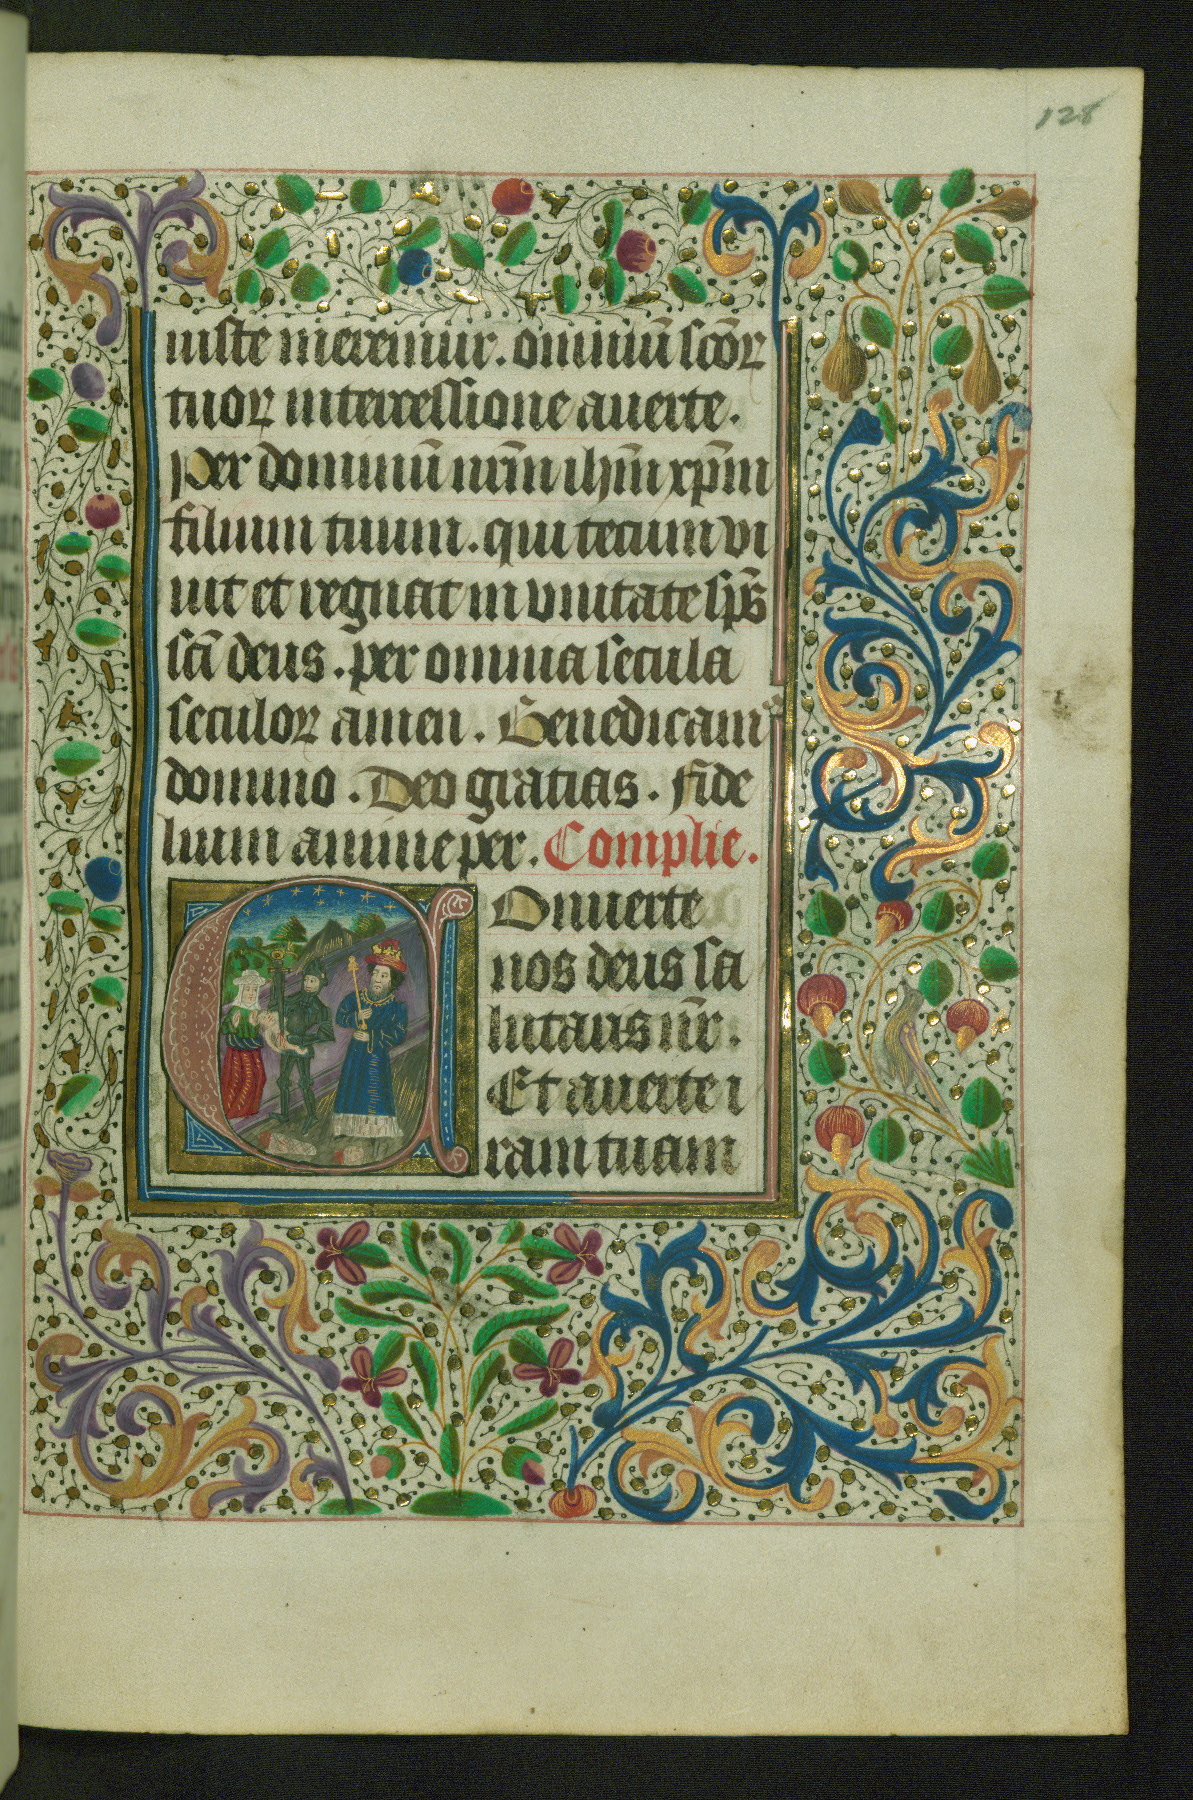 128
iuste meremur. omniũ scõꝝ
tuoꝝ intercessione auerte.
Per dominiũ nrm̃ ihm̃ xp̃m
filium tuum. qui tecum vi
uit et regnat in vnitate sp̃s
sc̃i deus. per omnia secula
seculoꝝ amen. Benedicamꝰ
domino. Deo gratias. Fide
lium anime per. Complie.
Onuerte
nos deus sa
lutaris nr̃.
Et auerte i
ram tuam